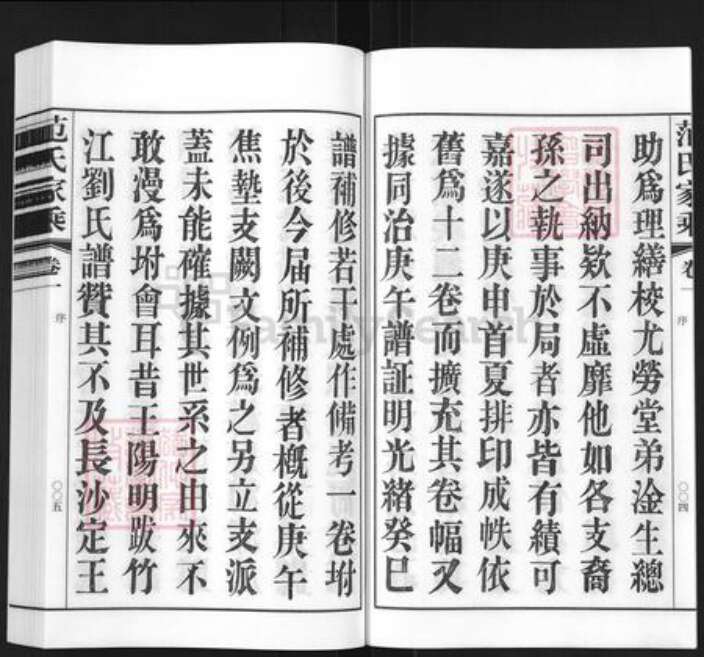 范氏家乘
卷一
序
〇〇四
助爲理繕校尤勞堂弟淦生總
司出納欵不虛靡他如各支裔
孫之執事於局者亦皆有績可
嘉遂以庚申首夏排印成帙依
舊爲十二卷而擴充其卷幅又
據同治庚午譜証明光緒癸巳
譜補修若干處作備考一卷坿
於後今届所補修者概從庚午
焦墊支闕文例爲之另立支派
蓋未能確據其世系之由來不
敢漫爲坿會耳昔王陽明跋竹
江劉氏譜贊其不及長沙定王
范氏家乘
卷一
序
〇〇五
FamilySearch